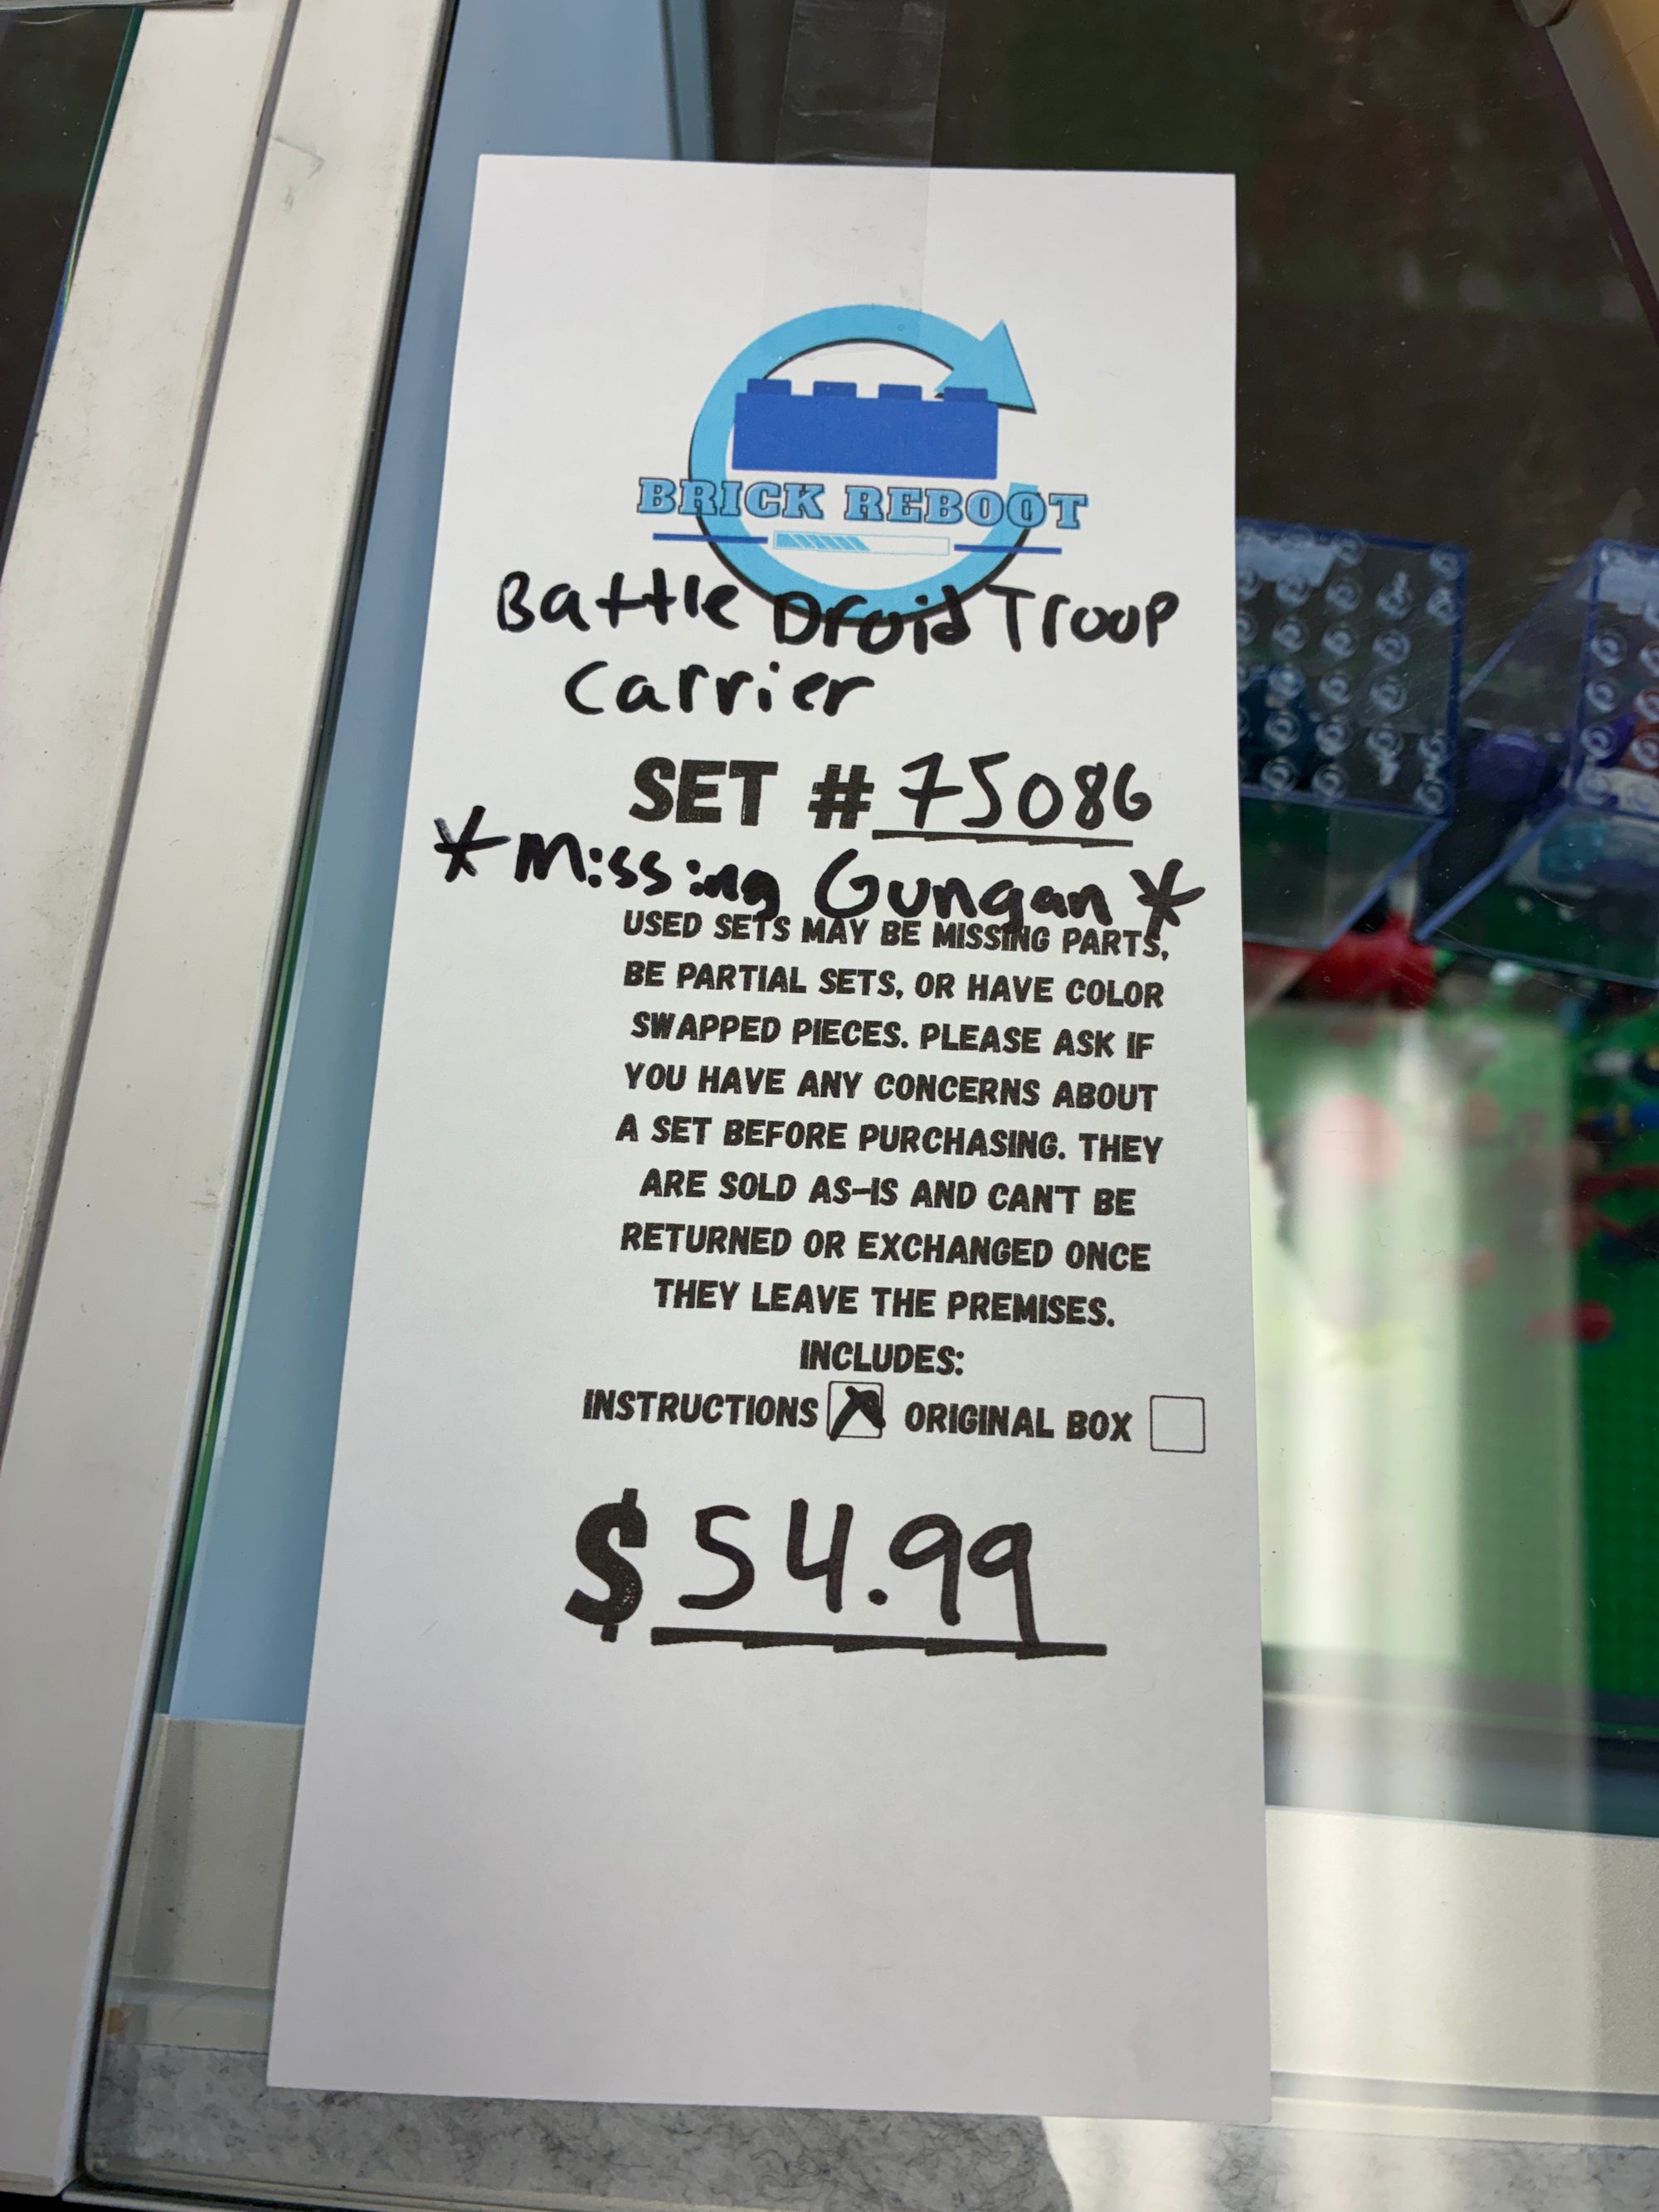 BRICK REBOOT
Battle Droid Troop
Carrier
SET # 75086
*Missing Gungan*
USED SETS MAY BE MISSING PARTS,
BE PARTIAL SETS, OR HAVE COLOR
SWAPPED PIECES. PLEASE ASK IF
YOU HAVE ANY CONCERNS ABOUT
A SET BEFORE PURCHASING. THEY
ARE SOLD AS-IS AND CAN'T BE
RETURNED OR EXCHANGED ONCE
THEY LEAVE THE PREMISES.
INCLUDES:
INSTRUCTIONS ORIGINAL BOX
$54.99